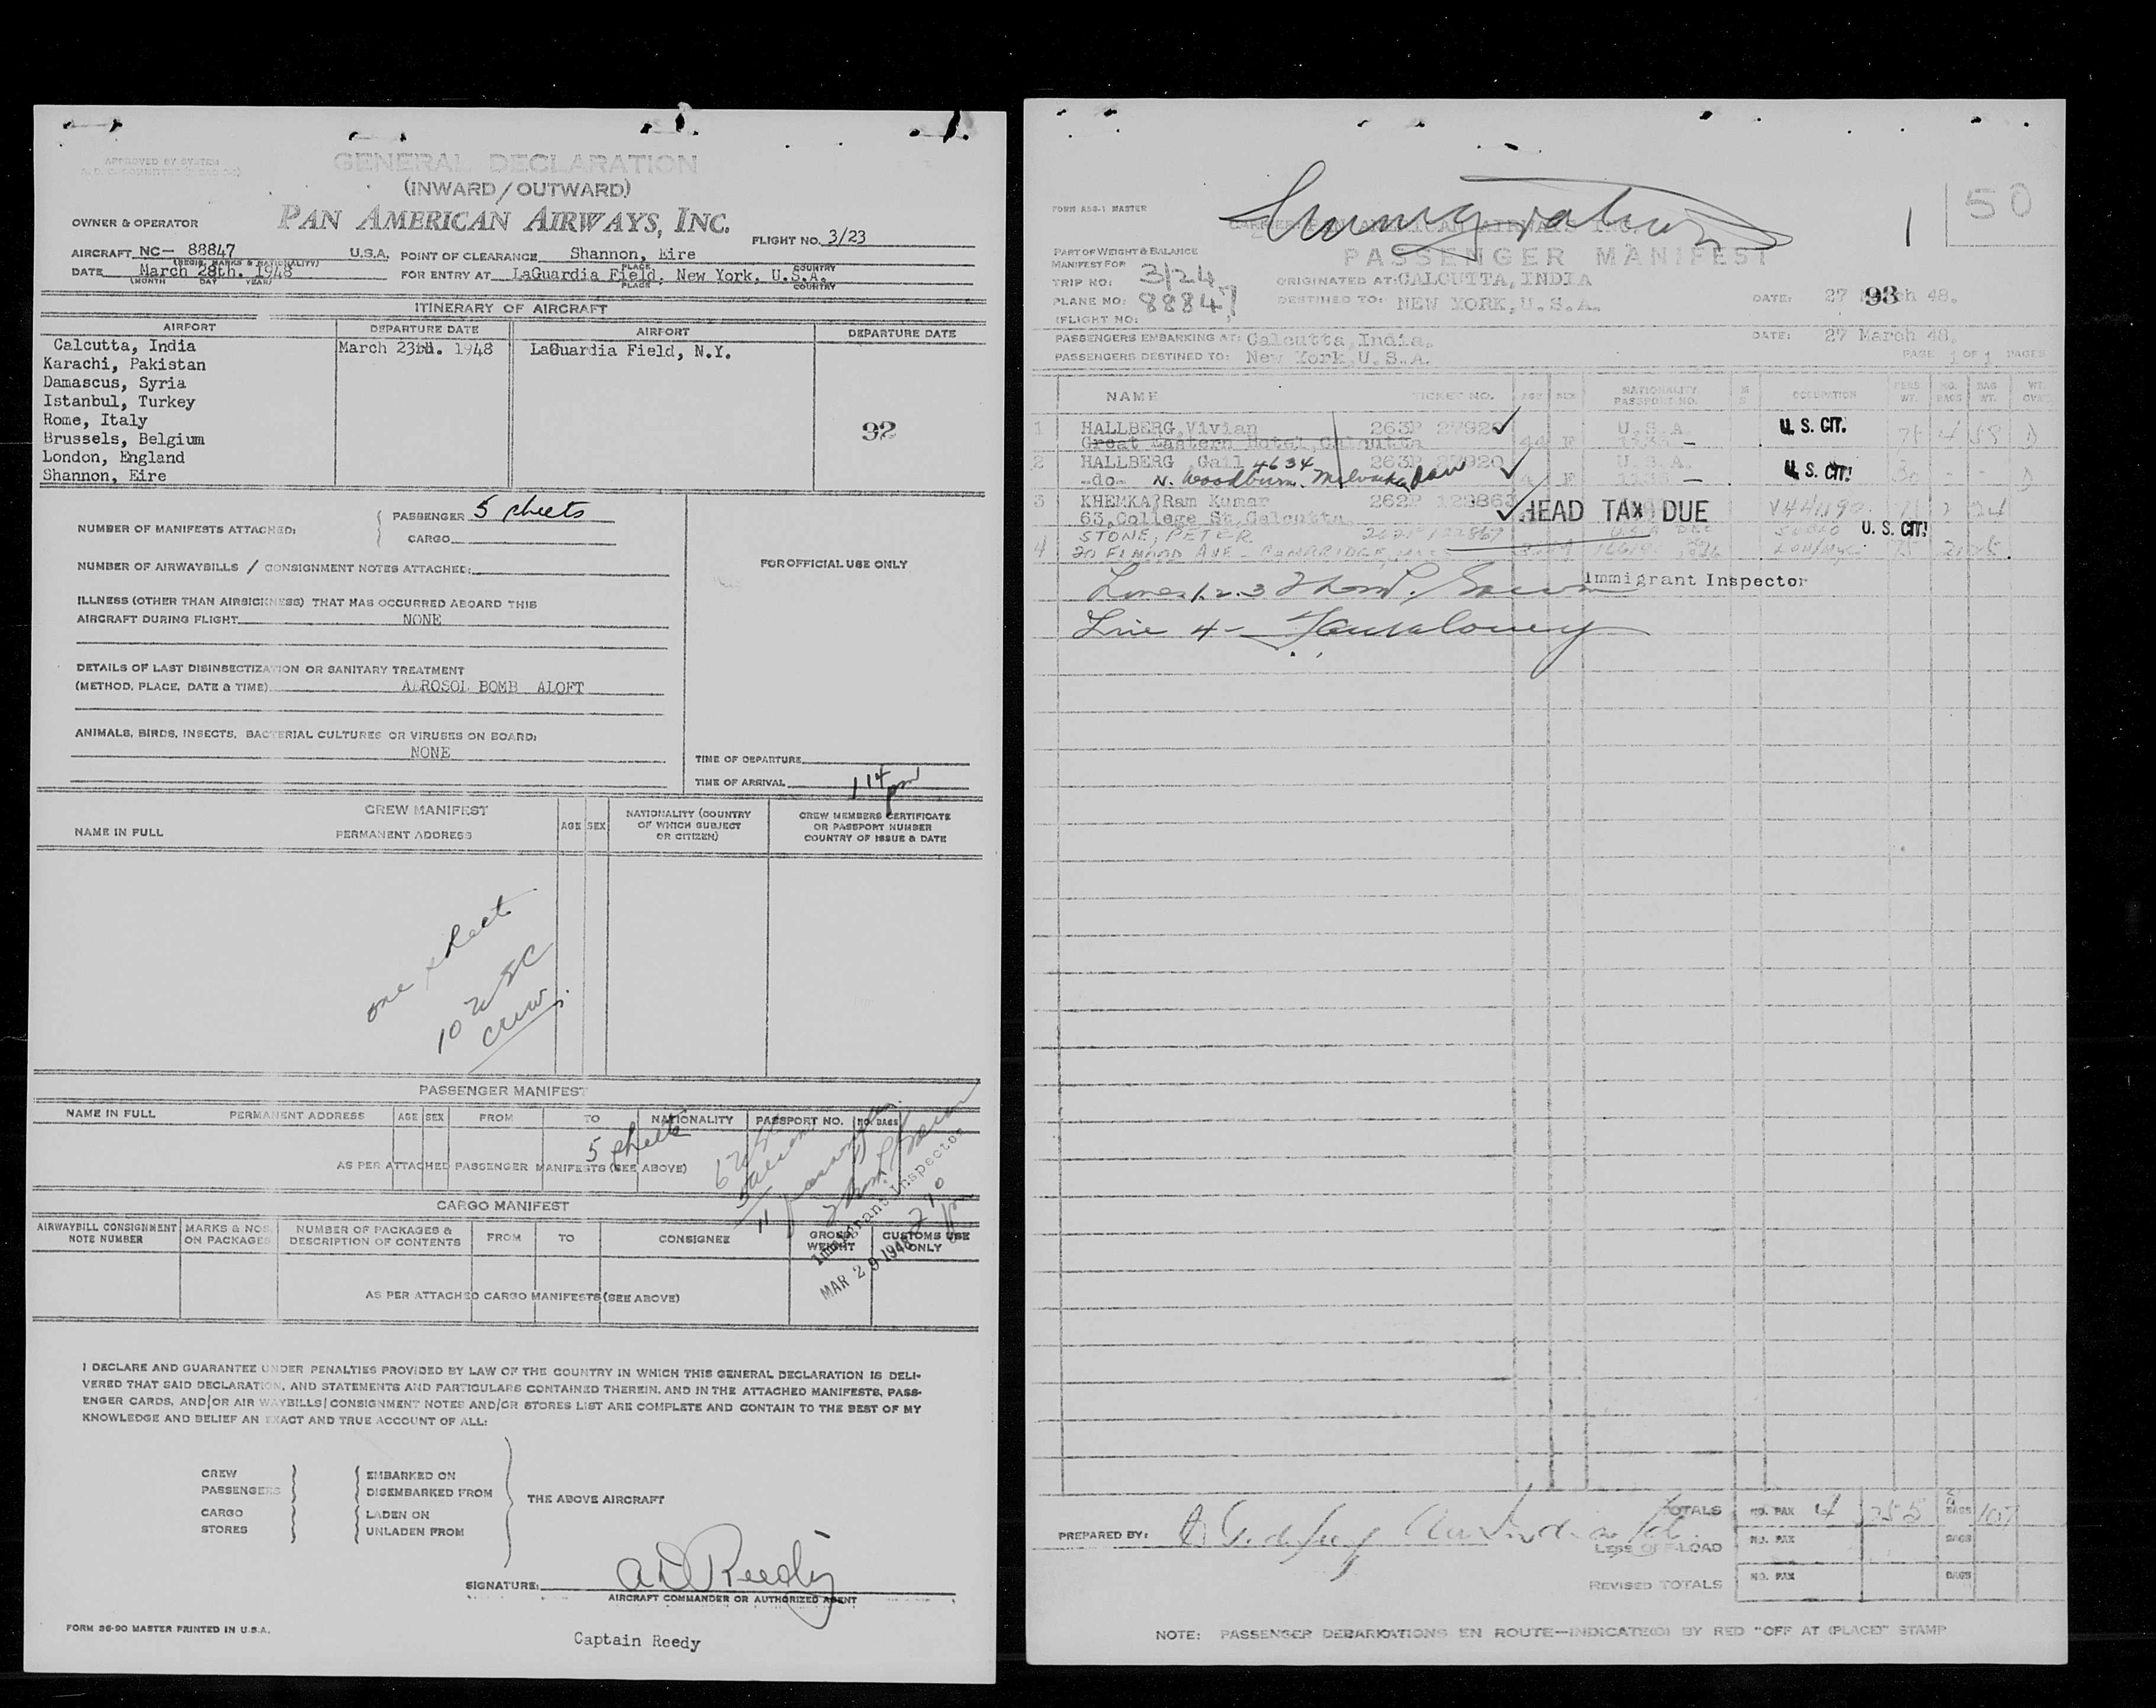 APPROVED BY SYSTEM
GENERAL DECLARATION
(INWARD/OUTWARD)
OWNER & OPERATOR PAN AMERICAN AIRWAYS, INC.
FLIGHT NO. 3/23
AIRCRAFT NC- 88847 U.S.A. POINT OF CLEARANCE Shannon, Eire
(REGIS. MARKS & NATIONALITY) PLACE COUNTRY
DATE March 28th. 1948 FOR ENTRY AT LaGuardia Field, New York, U.S.A.
(MONTH DAY YEAR) PLACE COUNTRY
ITINERARY OF AIRCRAFT
AIRPORT DEPARTURE DATE AIRPORT DEPARTURE DATE
Calcutta, India March 23rd. 1948 LaGuardia Field, N.Y.
Karachi, Pakistan
Damascus, Syria
Istanbul, Turkey
Rome, Italy
Brussels, Belgium 92
London, England
Shannon, Eire
NUMBER OF MANIFESTS ATTACHED: PASSENGER 5 sheets
CARGO
NUMBER OF AIRWAYBILLS / CONSIGNMENT NOTES ATTACHED:
FOR OFFICIAL USE ONLY
ILLNESS (OTHER THAN AIRSICKNESS) THAT HAS OCCURRED ABOARD THIS
AIRCRAFT DURING FLIGHT NONE
DETAILS OF LAST DISINSECTIZATION OR SANITARY TREATMENT
(METHOD, PLACE, DATE & TIME) AEROSOL BOMB ALOFT
ANIMALS, BIRDS, INSECTS, BACTERIAL CULTURES OR VIRUSES ON BOARD:
NONE
TIME OF DEPARTURE
TIME OF ARRIVAL 114 pm
CREW MANIFEST
NAME IN FULL PERMANENT ADDRESS AGE SEX NATIONALITY (COUNTRY OF WHICH SUBJECT OR CITIZEN) CREW MEMBERS CERTIFICATE OR PASSPORT NUMBER COUNTRY OF ISSUE & DATE
one sheet
10 USC
crew.
PASSENGER MANIFEST
NAME IN FULL PERMANENT ADDRESS AGE SEX FROM TO NATIONALITY PASSPORT NO. NO. BAGS
5 sheets
AS PER ATTACHED PASSENGER MANIFESTS (SEE ABOVE)
6 USC
5 aliens
11 passengers
Immigrant Inspector
MAR 29 1948 210 pm
CARGO MANIFEST
AIRWAYBILL CONSIGNMENT NOTE NUMBER MARKS & NOS. ON PACKAGES NUMBER OF PACKAGES & DESCRIPTION OF CONTENTS FROM TO CONSIGNEE GROSS WEIGHT CUSTOMS USE ONLY
AS PER ATTACHED CARGO MANIFESTS (SEE ABOVE)
I DECLARE AND GUARANTEE UNDER PENALTIES PROVIDED BY LAW OF THE COUNTRY IN WHICH THIS GENERAL DECLARATION IS DELI-
VERED THAT SAID DECLARATION, AND STATEMENTS AND PARTICULARS CONTAINED THEREIN, AND IN THE ATTACHED MANIFESTS, PASS-
ENGER CARDS, AND/OR AIR WAYBILLS/CONSIGNMENT NOTES AND/OR STORES LIST ARE COMPLETE AND CONTAIN TO THE BEST OF MY
KNOWLEDGE AND BELIEF AN EXACT AND TRUE ACCOUNT OF ALL:
CREW EMBARKED ON
PASSENGERS DISEMBARKED FROM
THE ABOVE AIRCRAFT
CARGO LADEN ON
STORES UNLADEN FROM
SIGNATURE: A D Reedy
AIRCRAFT COMMANDER OR AUTHORIZED AGENT
FORM 36-90 MASTER PRINTED IN U.S.A.
Captain Reedy
FORM ASG-1 MASTER
Immigration
1 50
PART OF WEIGHT & BALANCE
MANIFEST FOR
PASSENGER MANIFEST
TRIP NO: 3/24 ORIGINATED AT: CALCUTTA, INDIA
PLANE NO: 88847 DESTINED TO: NEW YORK, U.S.A. DATE: 27 March 48.
93
(FLIGHT NO:
PASSENGERS EMBARKING AT: Calcutta, India. DATE: 27 March 48.
PASSENGERS DESTINED TO: New York, U.S.A. PAGE 1 OF 1 PAGES
NAME TICKET NO. AGE SEX NATIONALITY PASSPORT NO. M S OCCUPATION PERS WT. NO. BAGS BAG WT. WT. OVR
1 HALLBERG, Vivian 263P 27920 U.S.A. U.S. CIT.
Great Eastern Hotel, Calcutta 44 F 71 4 58 D
2 HALLBERG, Gail 263P 27920 U.S.A. U.S. CIT!
-do- 4634 N. Woodburn. Milwaukee F 30 D
3 KHEMKA, Ram Kumar 262P 122863 HEAD TAX DUE V441190
63, College St, Calcutta
4 STONE, PETER 262P 122867 U.S.A. U.S. CIT!
20 ELMOOD AVE - CAMBRIDGE, MASS
Lines 1.2.3 Immigrant Inspector
Line 4 -
PREPARED BY:
TOTALS NO. PAX 4 255 BAGS 107
LESS OFF-LOAD NO. PAX BAGS
REVISED TOTALS NO. PAX BAGS
NOTE: PASSENGER DEBARKATIONS EN ROUTE—INDICATE(D) BY RED "OFF AT (PLACE)" STAMP